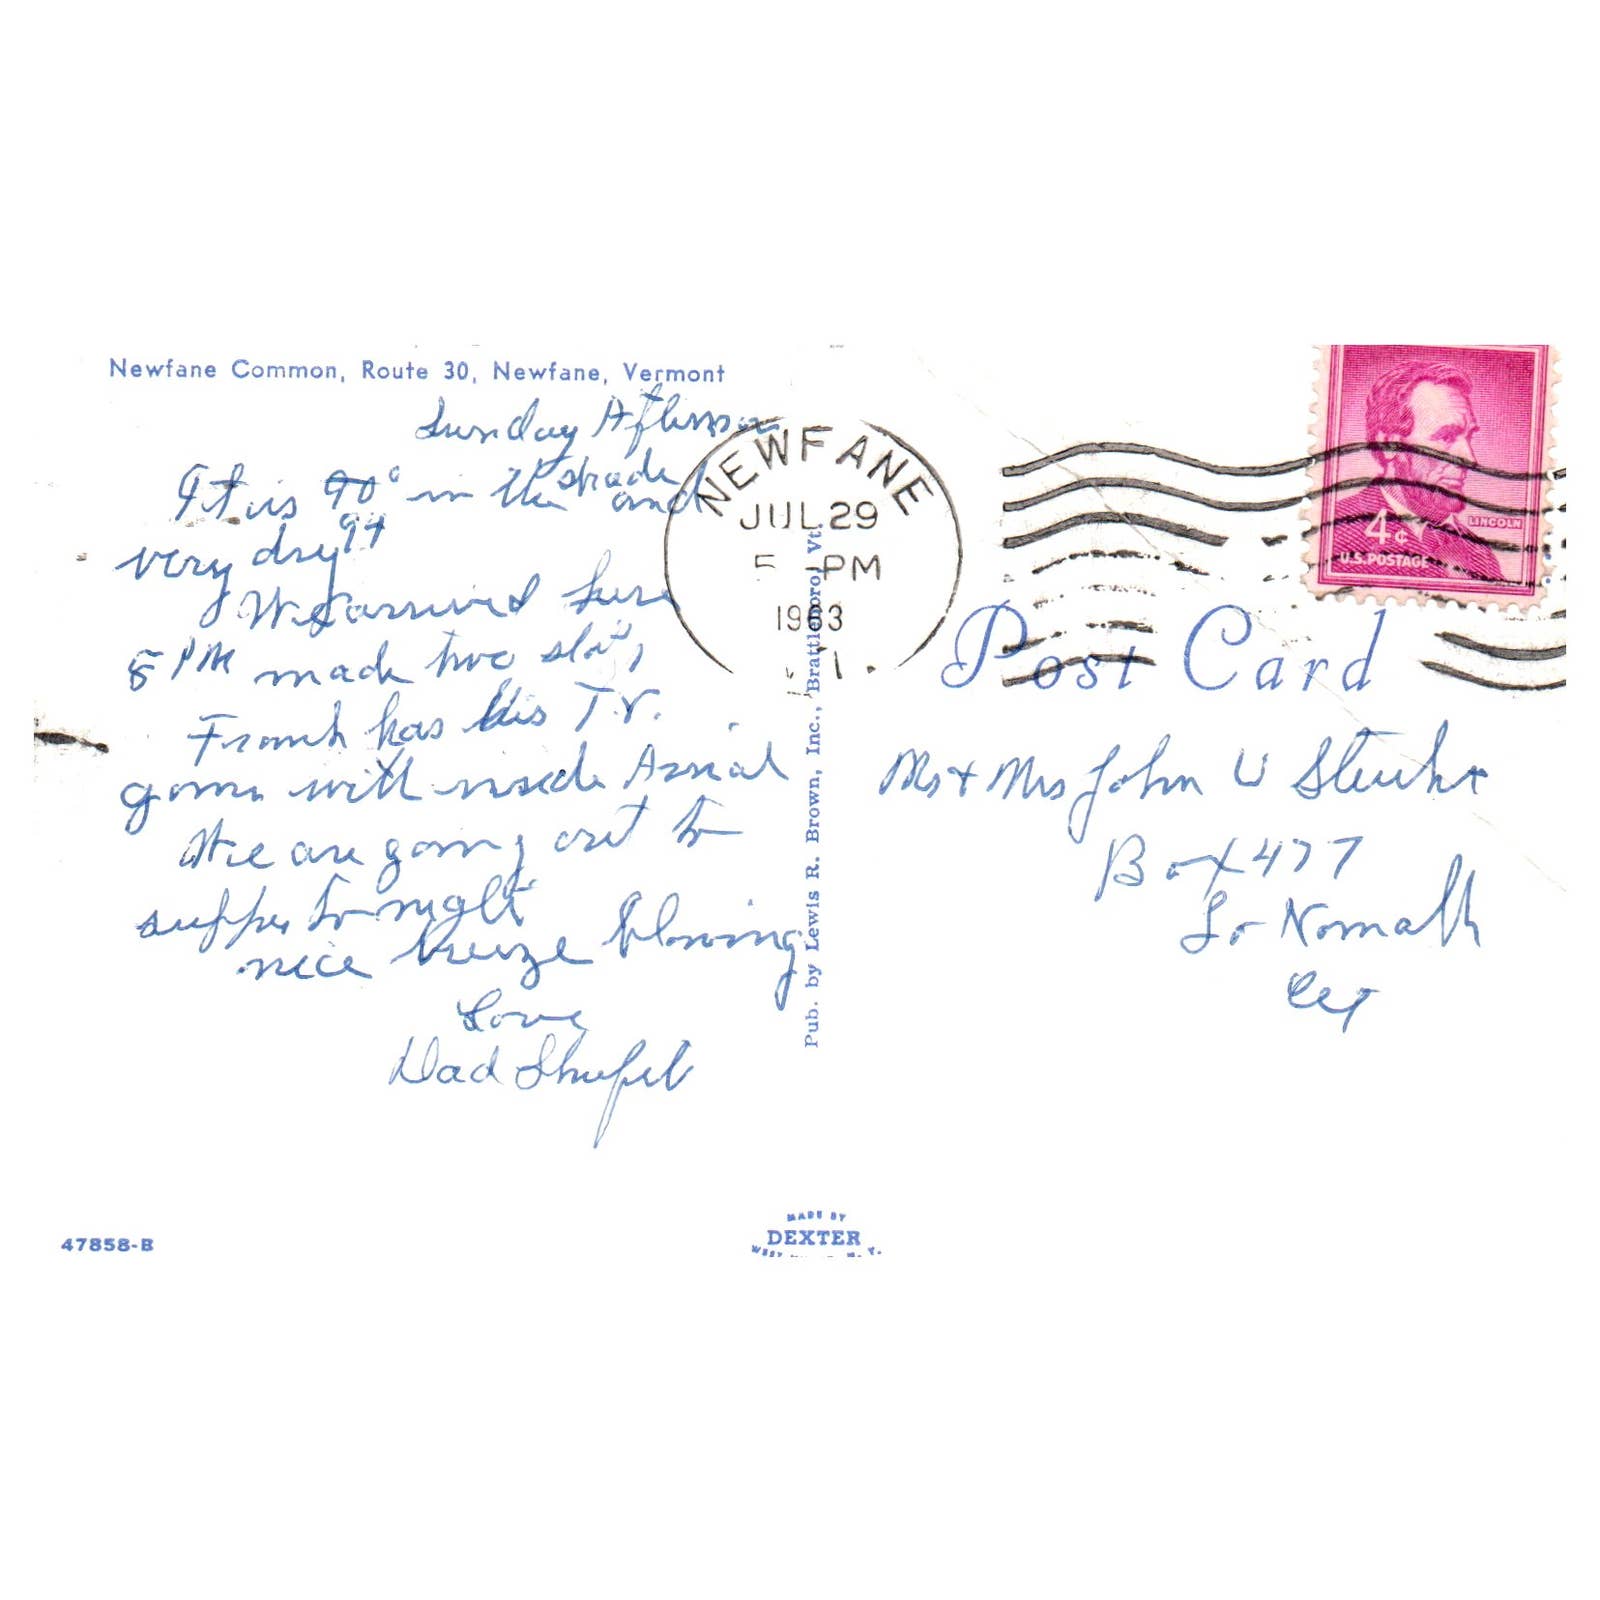 Newfane Common, Route 30, Newfane, Vermont
Sunday Afternoon
It is 90° in the shade and
very dry 94
We arrived here
5 PM made two stops
Frank has his T.V.
going with inside Aerial
We are going out to
supper to night
nice breeze blowing
Love
Dad
NEWFANE
JUL 29
5 -PM
1963
Pub. by Lewis R. Brown, Inc., Brattleboro, Vt.
4¢
LINCOLN
U.S. POSTAGE
Post Card
Mr + Mrs John W
Box 477
So Norwalk
Ct
47858-B
MADE BY
DEXTER
WEST N. Y.